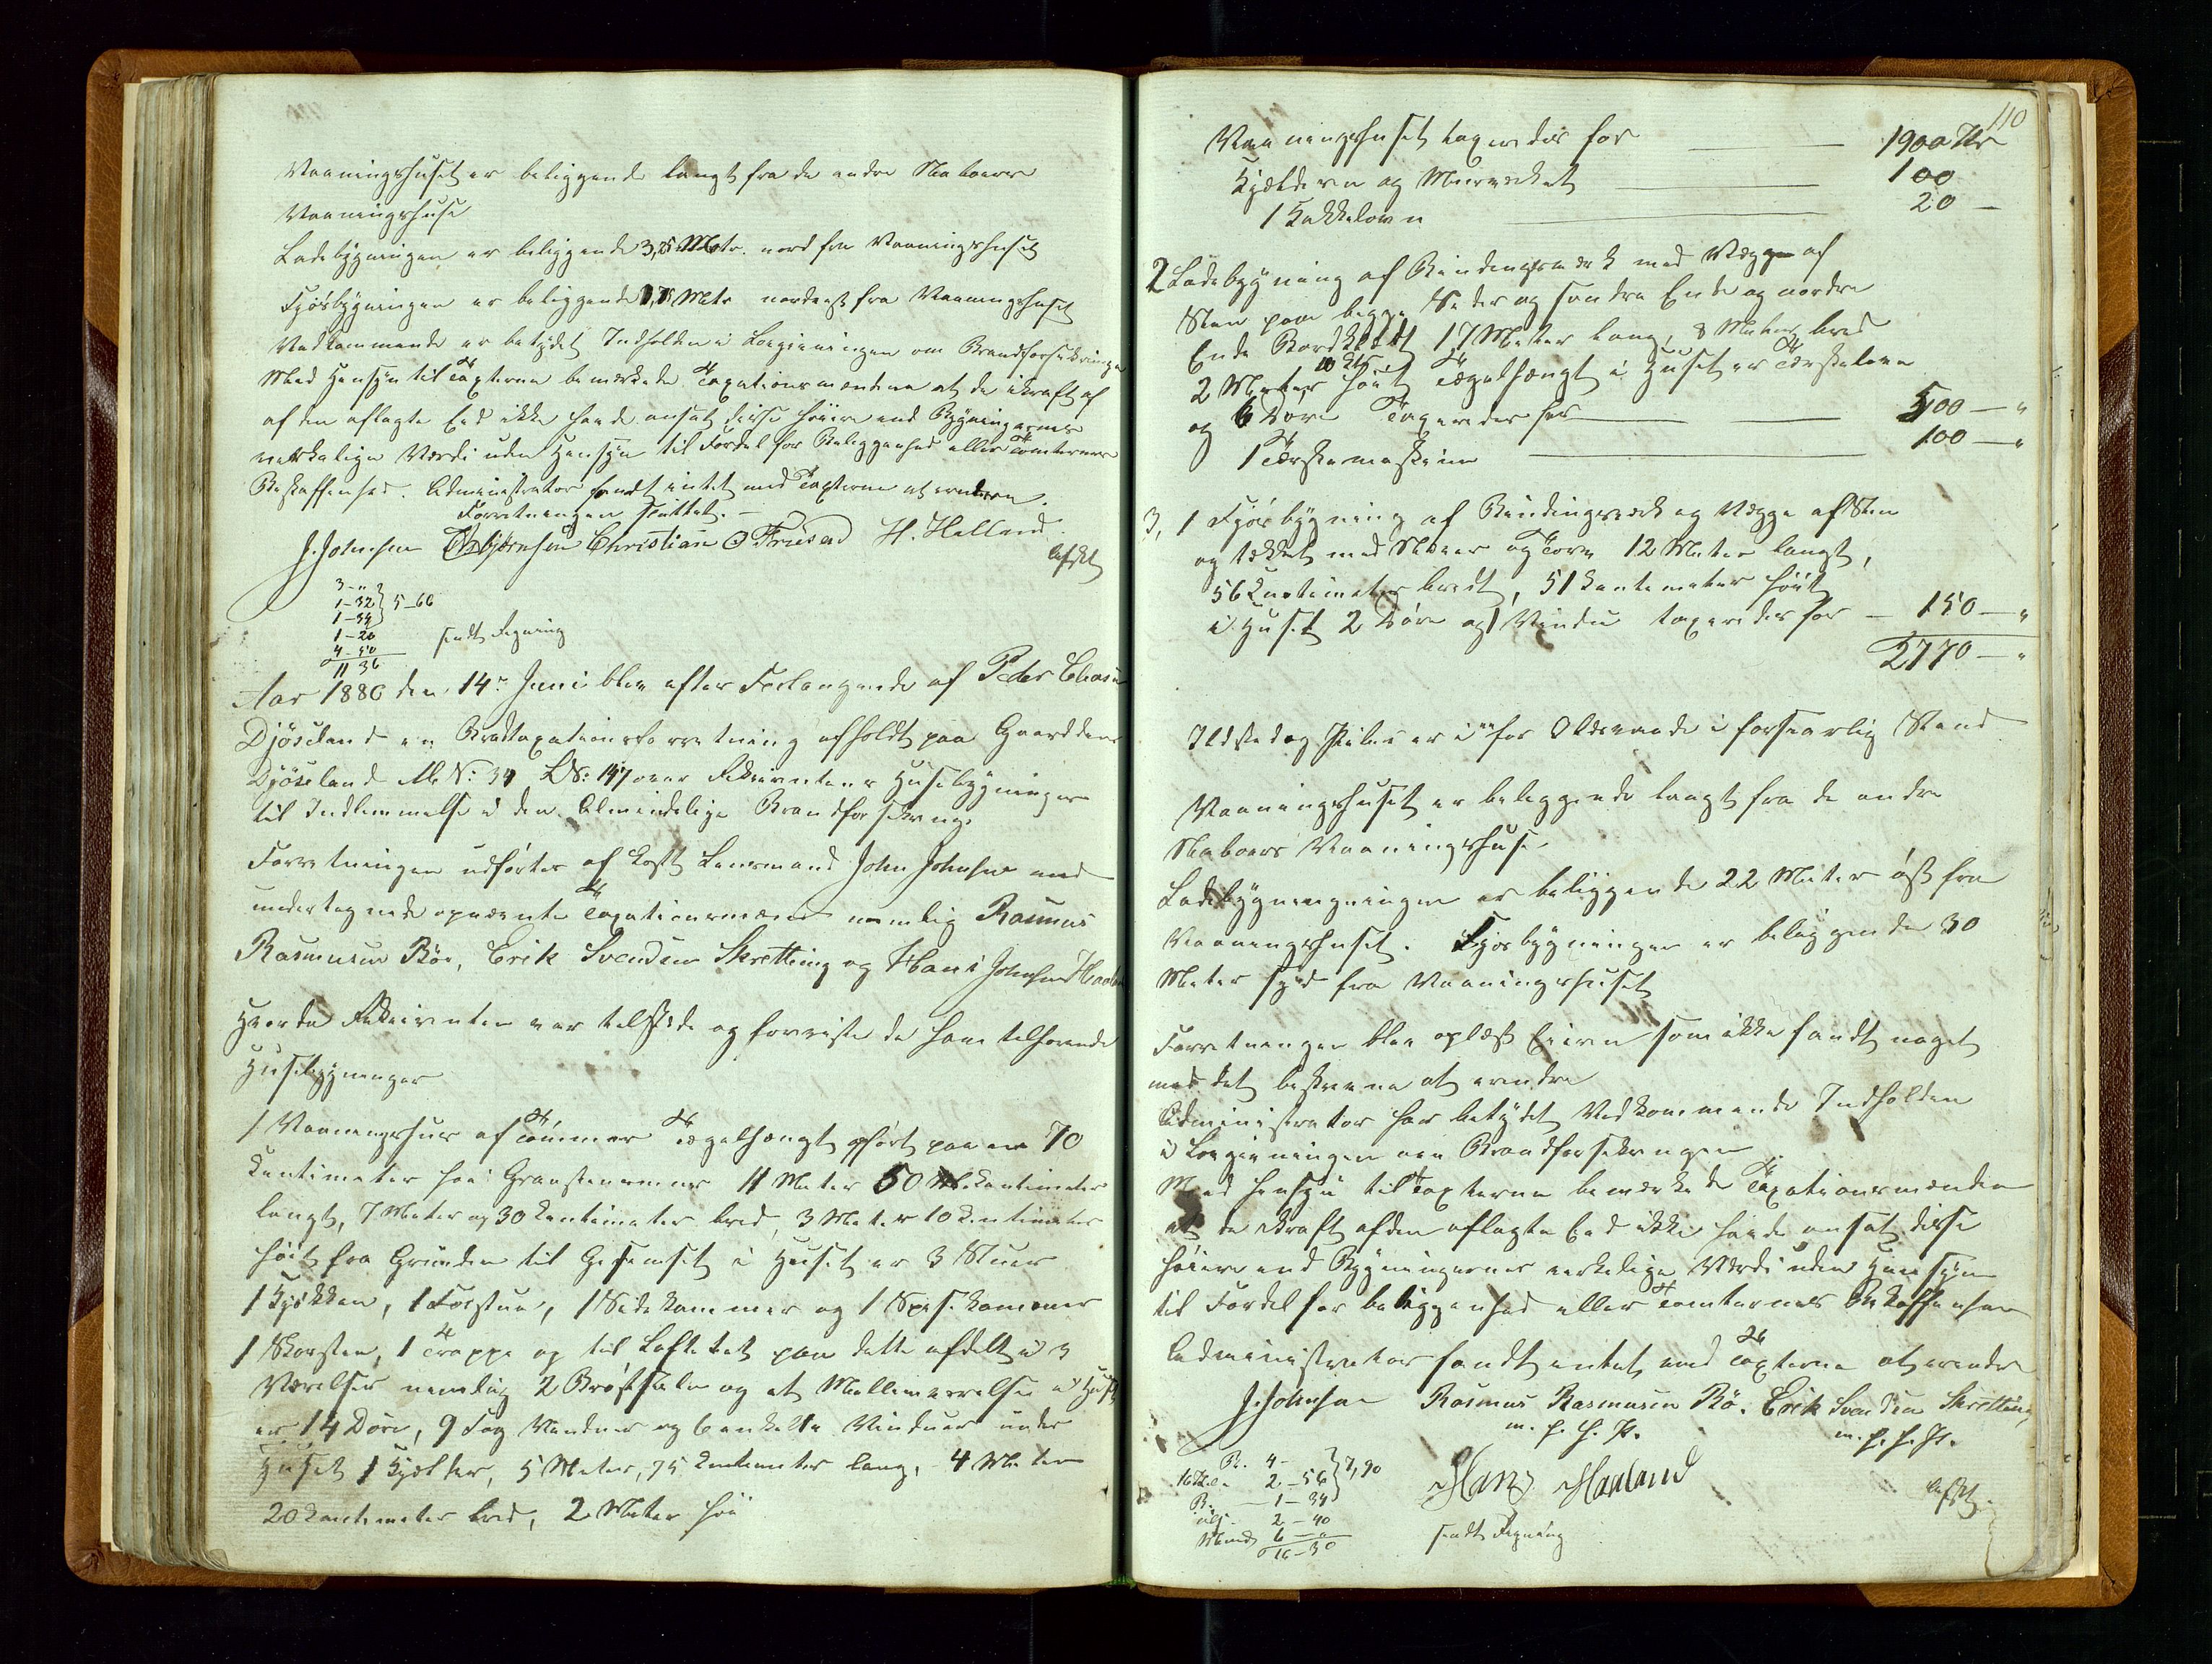 Vaaningshuset er beliggende langt fra de andre Naboers
Vaaningshuse
Ladebygningen er beliggende 3,75 Metr. nord fra Vaaningshuset
Fjösbygningen er beliggende Metr nordost fra Vaaningshuset
Vedkommende er betydet Indholden i Lovgivningen om Brandforsikringen
Med Hensyn til Taxterne bemærkede Taxationsmændene at de ikraft af
af den aflagte Eed ikke havde ansat disse höiere end Bygningernes
verkelige Værdi uden Hensyn til Fordel for Beliggenhed eller Tomternes
Beskaffenhed. Administrator fandt intet med Taxterne at erindre.
Forretningen sluttet. –
J. Johnsen Christian O Friisad H. Helland
Afskt
3 – "
1–32 } 5–66
1–34
1–20 sendt Regning
4–50
11 36
Aar 1880 den 14de Juni blev efter Forlangende af Peder Eliasen
Djöseland en Brandtaxationsforretning afholdt paa Gaarddens
Djöseland M. N: 34 LN: 147 over Rekvirentens Husebygninger
til Indlemmelse i den Almindelige Brandforsikring.
Forretningen udförtes af Konst Lensmand John Johnsen med
undertegnede opnævnte Taxationsmænd nemlig Rasmus
Rasmusen Röe, Erik Svendsen Skretting og Hans Johnsen Haaland
Hvorda Rekvirenten var tilstede og forviste de ham tilhörende
Husebygninger
1 Vaaningshus af Tömmer Tegelhængt opfört paa en 70
Centimeter höi Graastensmuur 11 Meter 50 Centimeter
langt, 7 Meter og 30 Centimeter bred, 3 Meter 10 Centimeter
höit fra Grunden til Gesemset i Huset er 3 Stuer
1 Kjökken, 1 Forstue, 1 Sidekammer og 1 Spisekammer
1 Skorsten, 1 Trappe og til Loftetet paa dette afdelt i 3
Værelser nemlig 2 Bröstsale og et Mellemværelse i Huset
er 14 Döre, 9 Fag Vinduer og 6 enkelte Vinduer under
Huset 1 Kjelder, 5 Meter, 75 Centimeter lang, 4 Meter
20 Centimeter bred, 2 Meter höi
110
Vaaningshuset taxeredes for 1900 Kr
Kjelderen og Murverket 100
1 Kakkelovn 20 –
2 Ladebygning af Bindingsværk med Vægge af
Sten paa begge Sider og söndre Ende og nordre
Ende Bordklædt 17 Meter lang, 8 Meter bred
2 Meter 10 Ctr höit Tegelhængt i Huset er Tærskelove
og 6 Döre Taxeredes for 500 – "
1 Tærskemaskine 100 – "
3, 1 Fjösbygning af Bindingsværk og Vægge af Sten
og tækket med Næver og Torv 12 Meter langt,
56 Centimeter bredt, 51 Centemeter höit
i Huset 2 Döre og 1 Vindu taxeredes for – 150 – "
2770 – "
Ildsted og Piber er i forsvarlig Stand
Vaaningshuset er beliggende langt fra de andre
Naboers Vaaningshuse
Ladebygningningen er beliggende 22 Meter öst fra
Vaaningshuset. Fjösbygningen er beliggende 30
Meter syd fra Vaaningshuset
Forretningen blev oplæst Eieren som ikke fandt noget
med det beskrevne at erindre
Administrator har betydet Vedkommende Indholden
i Lovgivningen om Brandforsikringen
Med Hensyn til Taxterne bemærkede Taxationsmændene
at de ikraft af den aflagte Eed ikke havde ansat disse
höiere end Bygningernes verkelige Værdi uden Hensyn
til Fordel for beliggenhed eller Tomternes Beskaffenhed
Administrator fandt intet med Taxterne at erindre
J. Johnsen Rasmus Rasmusen Rö. Erik Svendsen Skretting
m. f. h. P. m. f. h. P.
B. 4 –
2 – 56 } 7,90
B. 1 – 34
2 – 40
6 – "
16 – 30
Hans Haaland
Afskt.
sendt Regning